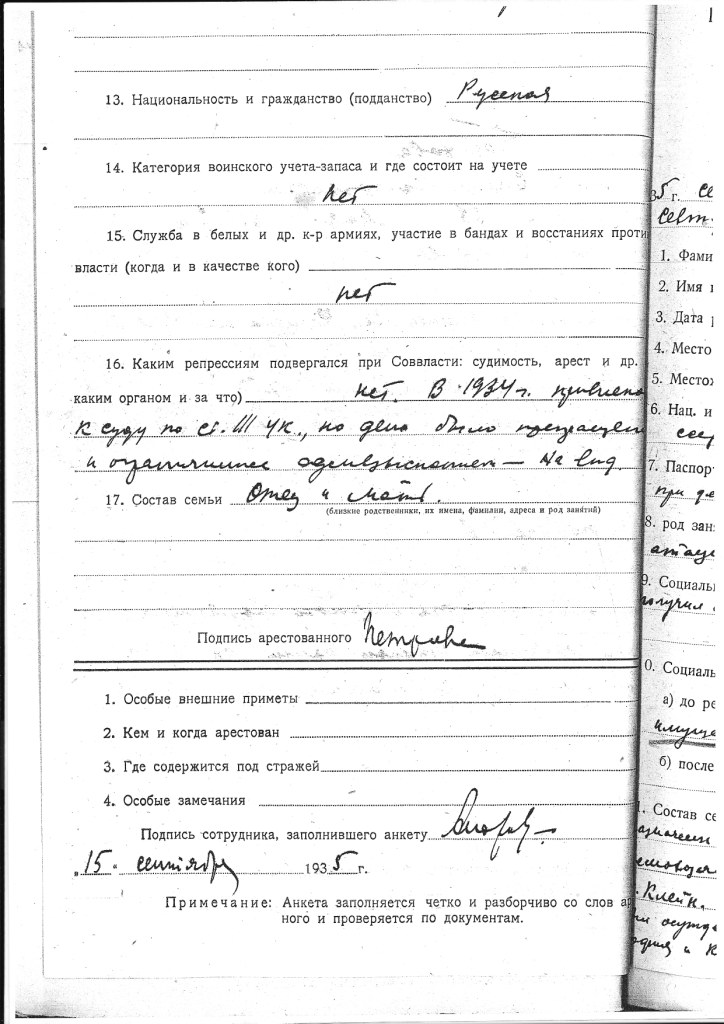 13. Национальность и гражданство (подданство) Русская
14. Категория воинского учета-запаса и где состоит на учете
нет
15. Служба в белых и др. к-р армиях, участие в бандах и восстаниях проти
власти (когда и в качестве кого)
нет
16. Каким репрессиям подвергался при Соввласти: судимость, арест и др.
каким органом и за что) нет. В 1934 г. привлено
к суду по ст. III УК., но дело было прекращен
и ограничились — На вид.
17. Состав семьи Отец и мать.
(близкие родственники, их имена, фамилии, адреса и род занятий)
Подпись арестованного Петрова
1. Особые внешние приметы
2. Кем и когда арестован
3. Где содержится под стражей
4. Особые замечания
Подпись сотрудника, заполнившего анкету
„15“ сентября 1935 г.
Примечание: Анкета заполняется четко и разборчиво со слов ар
ного и проверяется по документам.
35 г. се
сент.
1. Фами
2. Имя
3. Дата р
4. Место
5. Место
6. Нац. и
7. Паспор
при
8. род зан
9. Социаль
получил
0. Социаль
а) до ре
имуще
б) после
1. Состав се
Клейн.
осужд
и к